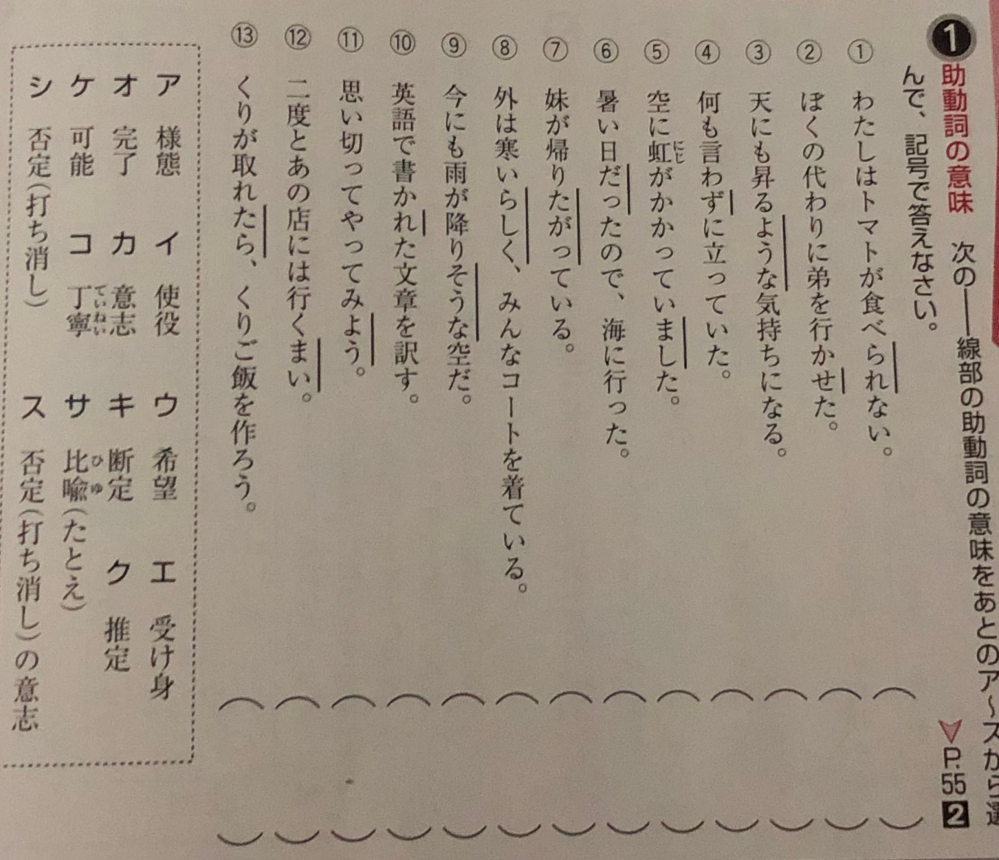 1 助動詞の意味 次の――線部の助動詞の意味をあとのア～スから選
んで、記号で答えなさい。
P.55 2
① わたしはトマトが食べられない。
② ぼくの代わりに弟を行かせた。
③ 天にも昇るような気持ちになる。
④ 何も言わずに立っていた。
⑤ 空に虹がかかっていました。
にじ
⑥ 暑い日だったので、海に行った。
⑦ 妹が帰りたがっている。
⑧ 外は寒いらしく、みんなコートを着ている。
⑨ 今にも雨が降りそうな空だ。
⑩ 英語で書かれた文章を訳す。
⑪ 思い切ってやってみよう。
⑫ 二度とあの店には行くまい。
⑬ くりが取れたら、くりご飯を作ろう。
ア 様態 イ 使役 ウ 希望 エ 受け身
オ 完了 カ 意志 キ 断定 ク 推定
ケ 可能 コ 丁寧 サ 比喩(たとえ)
ていねい ひゆ
シ 否定(打ち消し) ス 否定(打ち消し)の意志